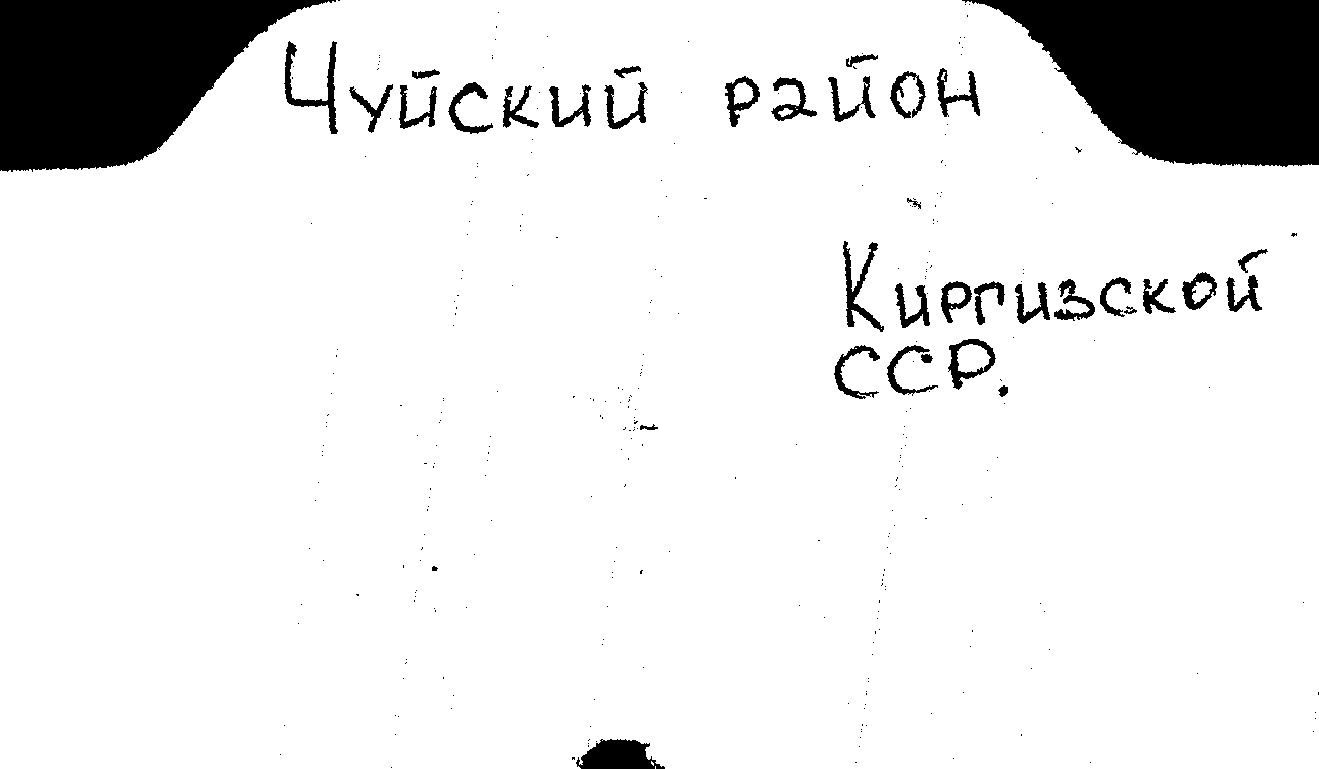 Чуйский район
Киргизской
ССР.